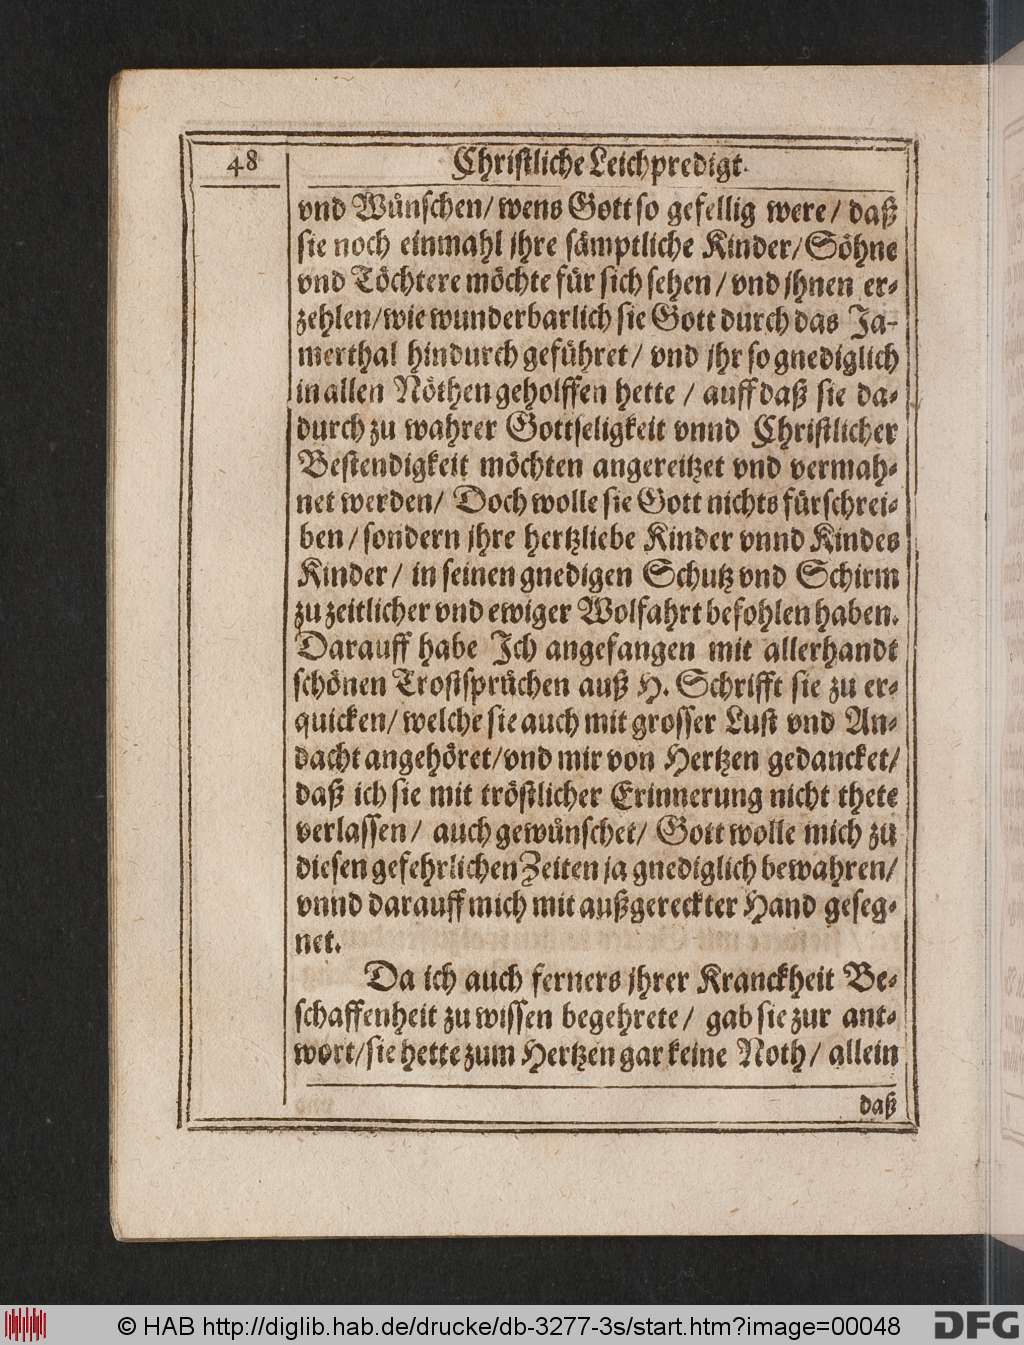 48
Christliche Leichpredigt.
vnd Wünschen/ wens Gott so gefellig were/ daß
sie noch einmahl jhre sämptliche Kinder/ Söhne
vnd Töchtere möchte für sich sehen/ vnd jhnen er-
zehlen/ wie wunderbarlich sie Gott durch das Ja-
merthal hindurch geführet/ vnd jhr so gnediglich
in allen Nöthen geholffen hette/ auff daß sie da-
durch zu wahrer Gottseligkeit vnnd Christlicher
Bestendigkeit möchten angereitzet vnd vermah-
net werden/ Doch wolle sie Gott nichts fürschrei-
ben/ sondern jhre hertzliebe Kinder vnnd Kindes
Kinder/ in seinen gnedigen Schutz vnd Schirm
zu zeitlicher vnd ewiger Wolfahrt befohlen haben.
Darauff habe Ich angefangen mit allerhandt
schönen Trostsprüchen auß H. Schrifft sie zu er-
quicken/ welche sie auch mit grosser Lust vnd An-
dacht angehöret/ vnd mir von Hertzen gedancket/
daß ich sie mit tröstlicher Erinnerung nicht thete
verlassen/ auch gewünschet/ Gott wolle mich zu
diesen gefehrlichen Zeiten ja gnediglich bewahren/
vnnd darauff mich mit außgereckter Hand geseg-
net.
Da ich auch ferners jhrer Kranckheit Be-
schaffenheit zu wissen begehrete/ gab sie zur ant-
wort/ sie hette zum Hertzen gar keine Noth/ allein
daß
© HAB http://diglib.hab.de/drucke/db-3277-3s/start.htm?image=00048
DFG